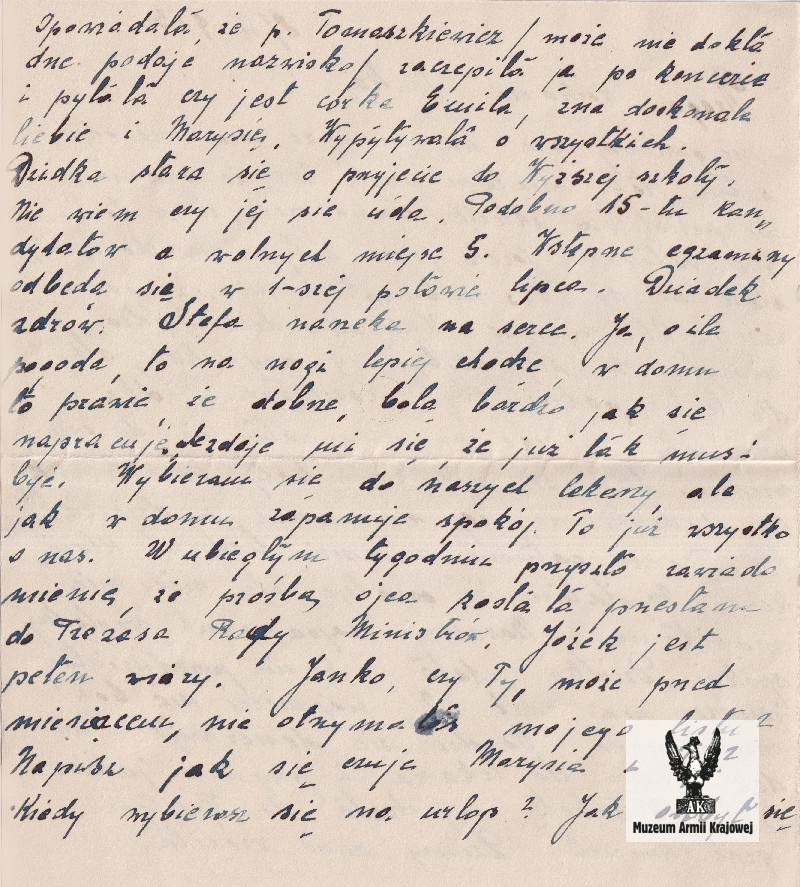 Opowiadała, że p. Tomaszkiewicz / może nie dokła
dne podaje nazwisko / zaczepiła ją po koncercie
i pytała czy jest córką Emila, zna doskonale
Ciebie i Marysię. Wypytywała o wszystkich.
Dzidka stara się o przyjęcie do Wyższej szkoły.
Nie wiem czy jej się uda. Podobno 15-tu kan„
dydatów a wolnych miejsc 5. Wstępne egzaminy
odbędą się w 1-szej połowie lipca. Dziadek
zdrów. Stefa narzeka na serce. Ja, o ile
pogoda, to na nogi lepiej chodzę, w domu
to prawie, że dobrze, bolą bardzo jak się
napracuję, zdaje mi się, że już tak musi
być. Wybieram się do naszych lekarzy, ale
jak w domu zapanuje spokój. To już wszystko
o nas. W ubiegłym tygodniu przyszło zawiado
mienie, że prośba ojca została przesłana
do Prezesa Rady Ministrów. Józek jest
pełen wiary. Janko, czy Ty, może przed
miesiącem, nie otrzymałaś mojego listu?
Napisz jak się czuje Marysia ?
Kiedy wybierasz się na urlop? Jak się
AK
Muzeum Armii Krajowej